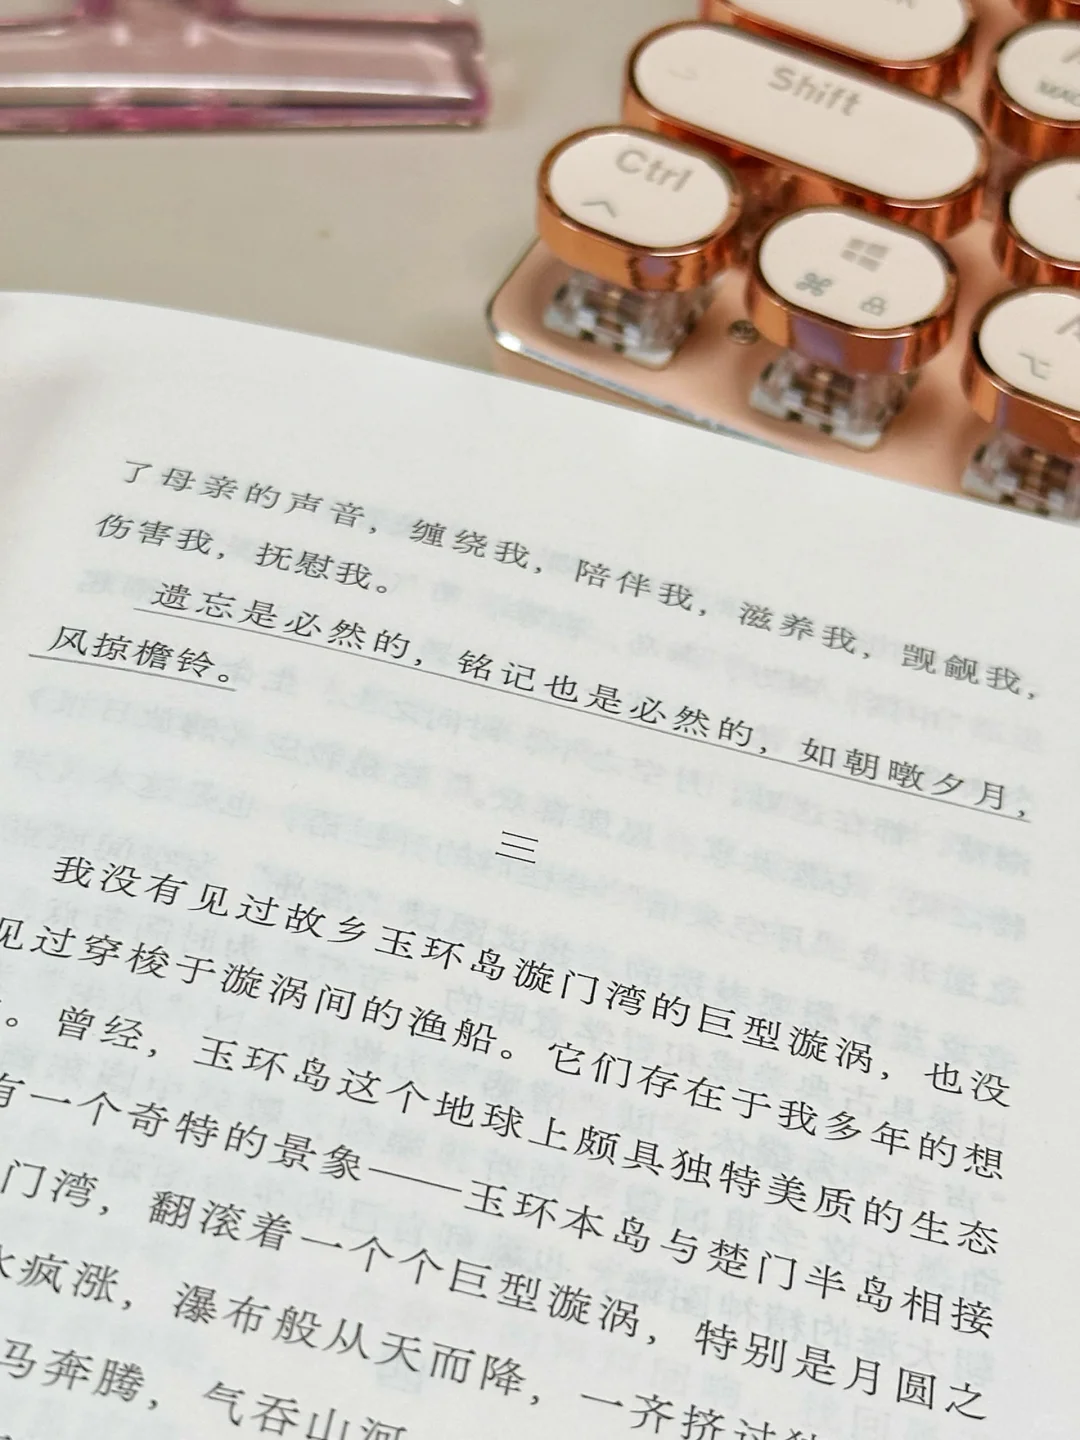 Shift
Ctrl
了母亲的声音，缠绕我，陪伴我，滋养我，觊觎我，
伤害我，抚慰我。
遗忘是必然的，铭记也是必然的，如朝暾夕月，
风掠檐铃。
三
我没有见过故乡玉环岛漩门湾的巨型漩涡，也没
见过穿梭于漩涡间的渔船。它们存在于我多年的想
。曾经，玉环岛这个地球上颇具独特美质的生态
有一个奇特的景象——玉环本岛与楚门半岛相接
门湾，翻滚着一个个巨型漩涡，特别是月圆之
水疯涨，瀑布般从天而降，一齐挤过
马奔腾，气吞山河